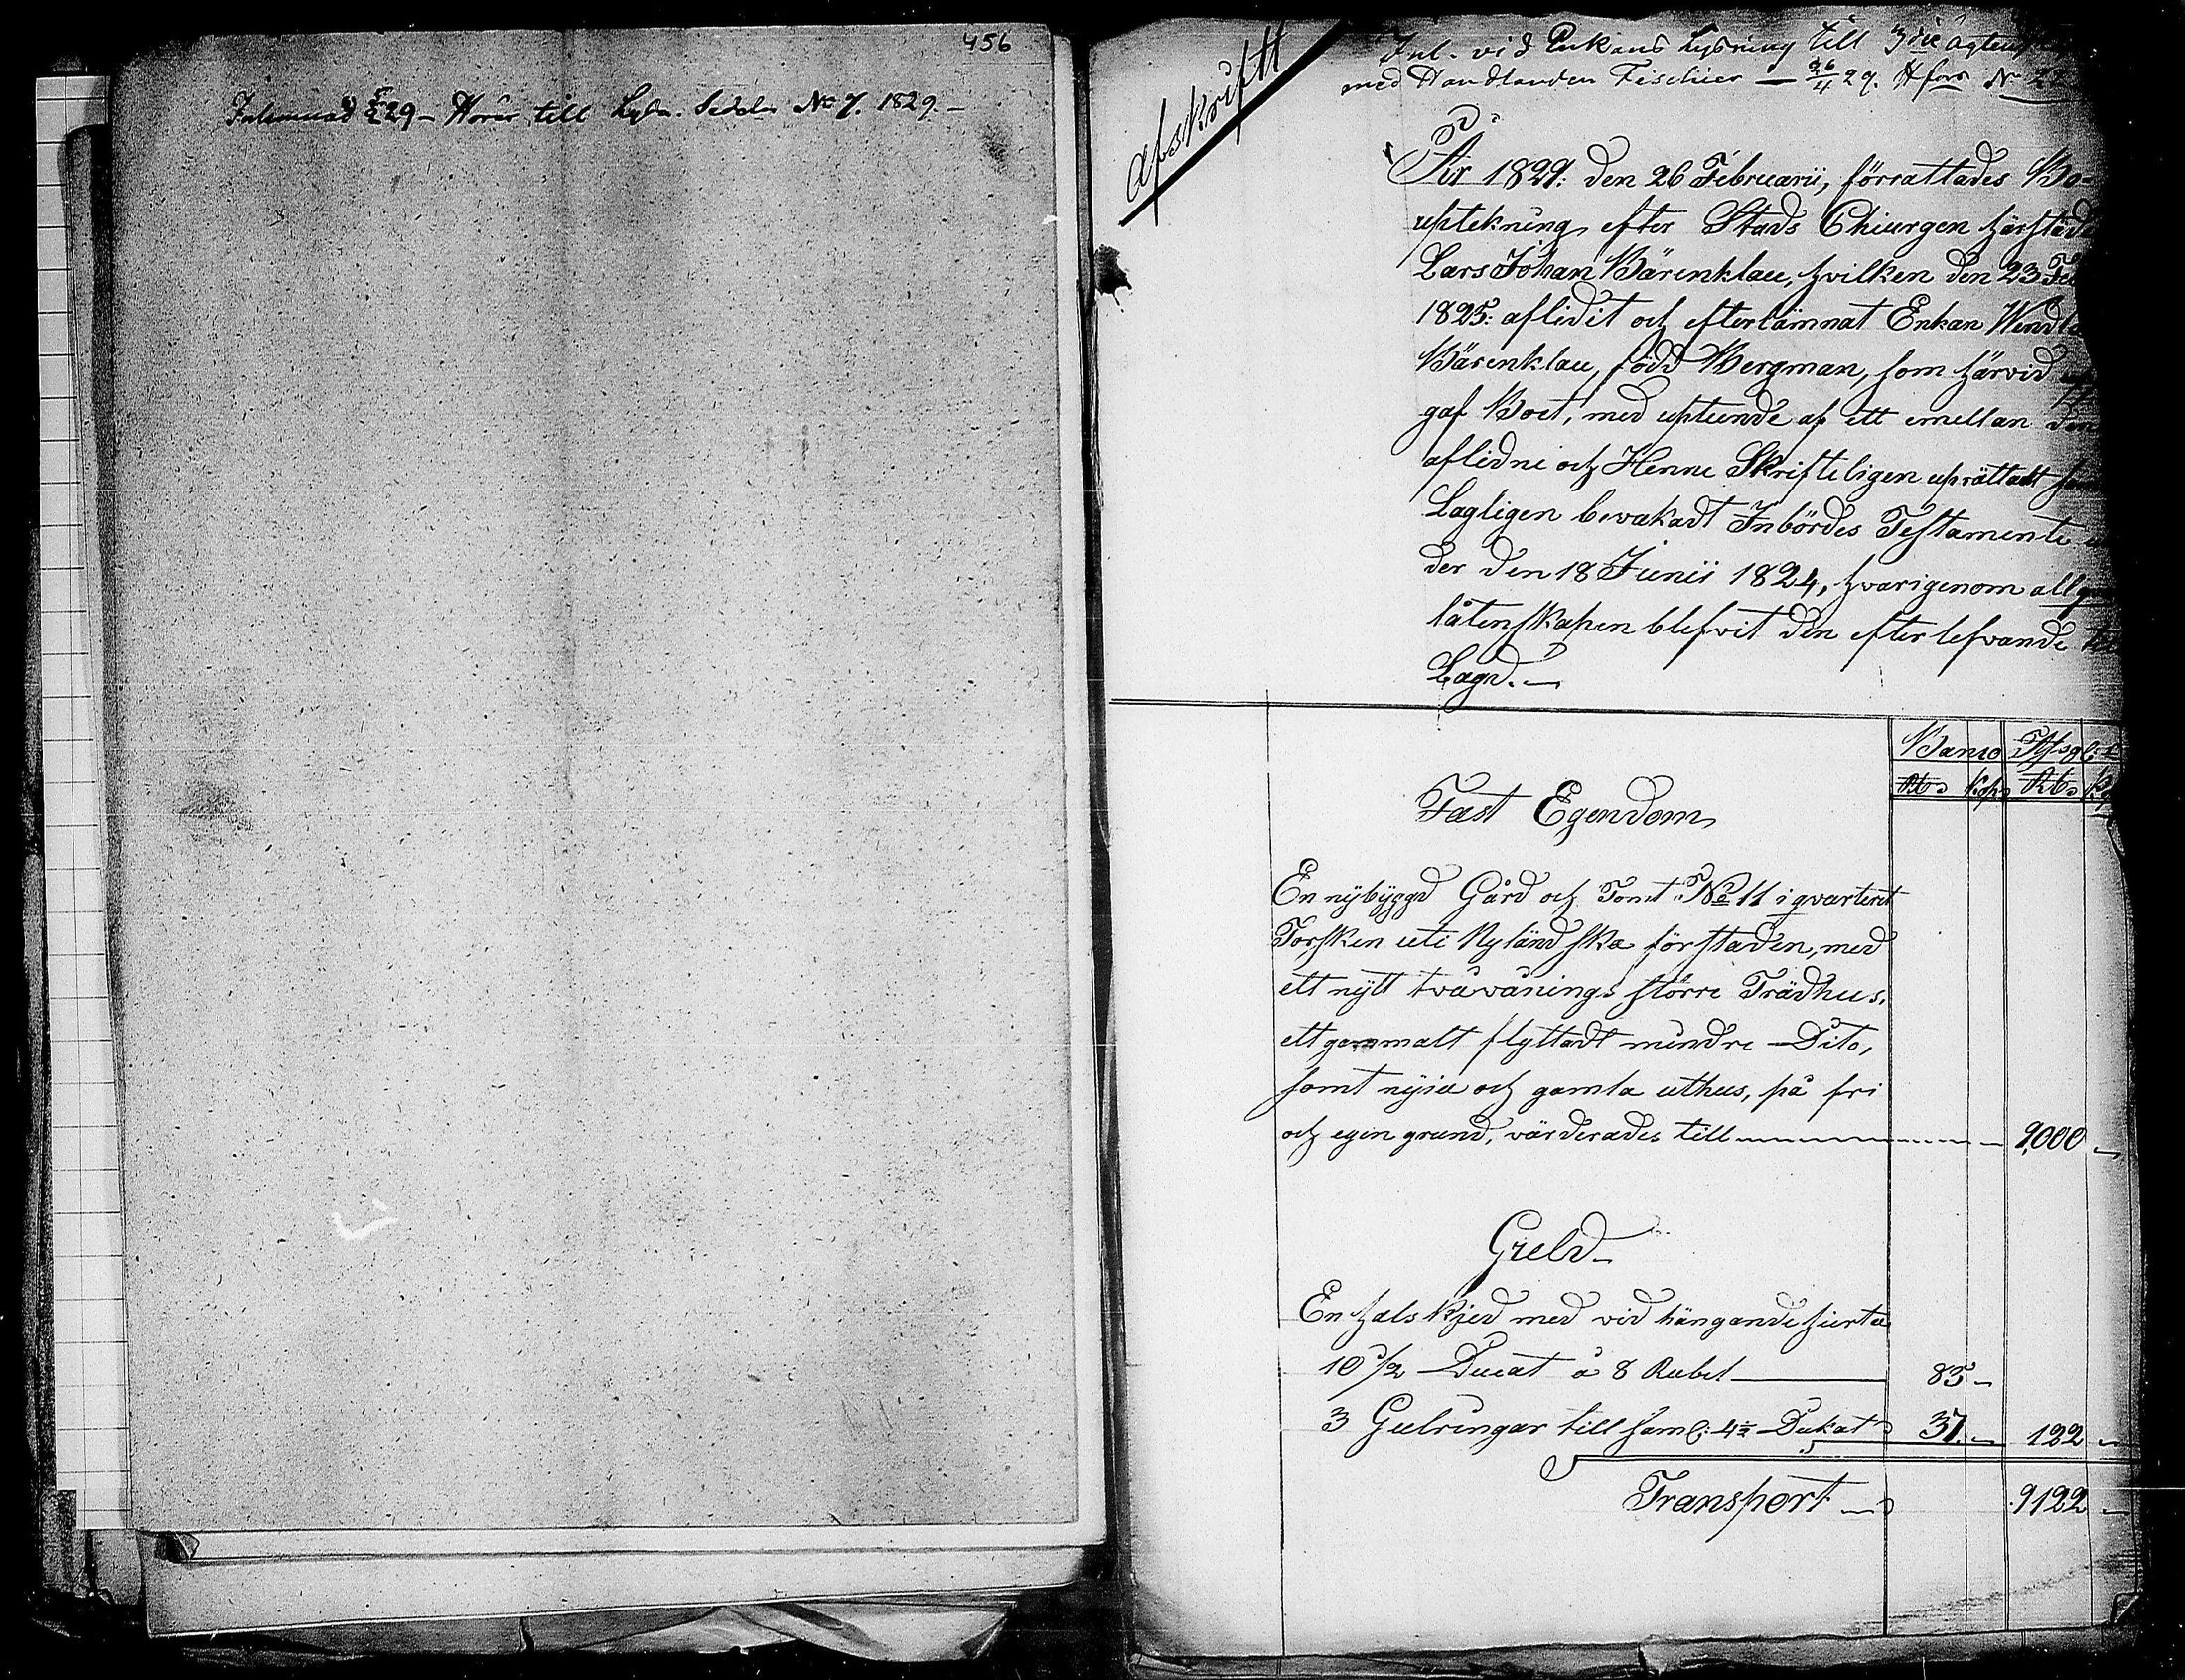 456
Inlemnad 5/2 29 – Hörer till Lysn. Sedeln No 7. 1829. –
Afskrift
Inl. vid Enkans Lysning till 3die ägten
med Handlanden Fischier — 26/4 29. Hfors No 22
År 1829: den 26 Februarii, förrattades Bo-
uptekning efter Stads Chiurgen härstädes
Lars Johan Bärenklau, hvilken den 23 Feb
1825: aflidit och efterlämnat Enkan Wendla
Bärenklau, född Bergman, som härvid
gaf Boet, med upteende af ett emellan den
aflidne och Henne Skrifteligen uprättadt samt
Lagligen bevakadt Inbördes Testamente
der den 18 Junii 1824, hvarigenom all
låtenskapen blefvit den efterlefvande
Lagd. —
Banco Assgl:
Rb. Kop. Rb. K
Fast Egendom
En nybyggd Gård och Tomt No 11 i qvarteret
Torsken uti Nyländska förstaden, med
ett nytt tvåvånings större Trädhus,
ett gammalt flyttadt mindre Dito,
samt nyia och gamla uthus, på fri
och egen grund, värderades till 9,000 —
Guld
En halskjed med vid hängande hierta
10 1/2 Ducat a 8 Rubel — 85 —
3 Gulringar till saml: 4 1/2 Dukat 37. — 122 —
Transport — 9122 —